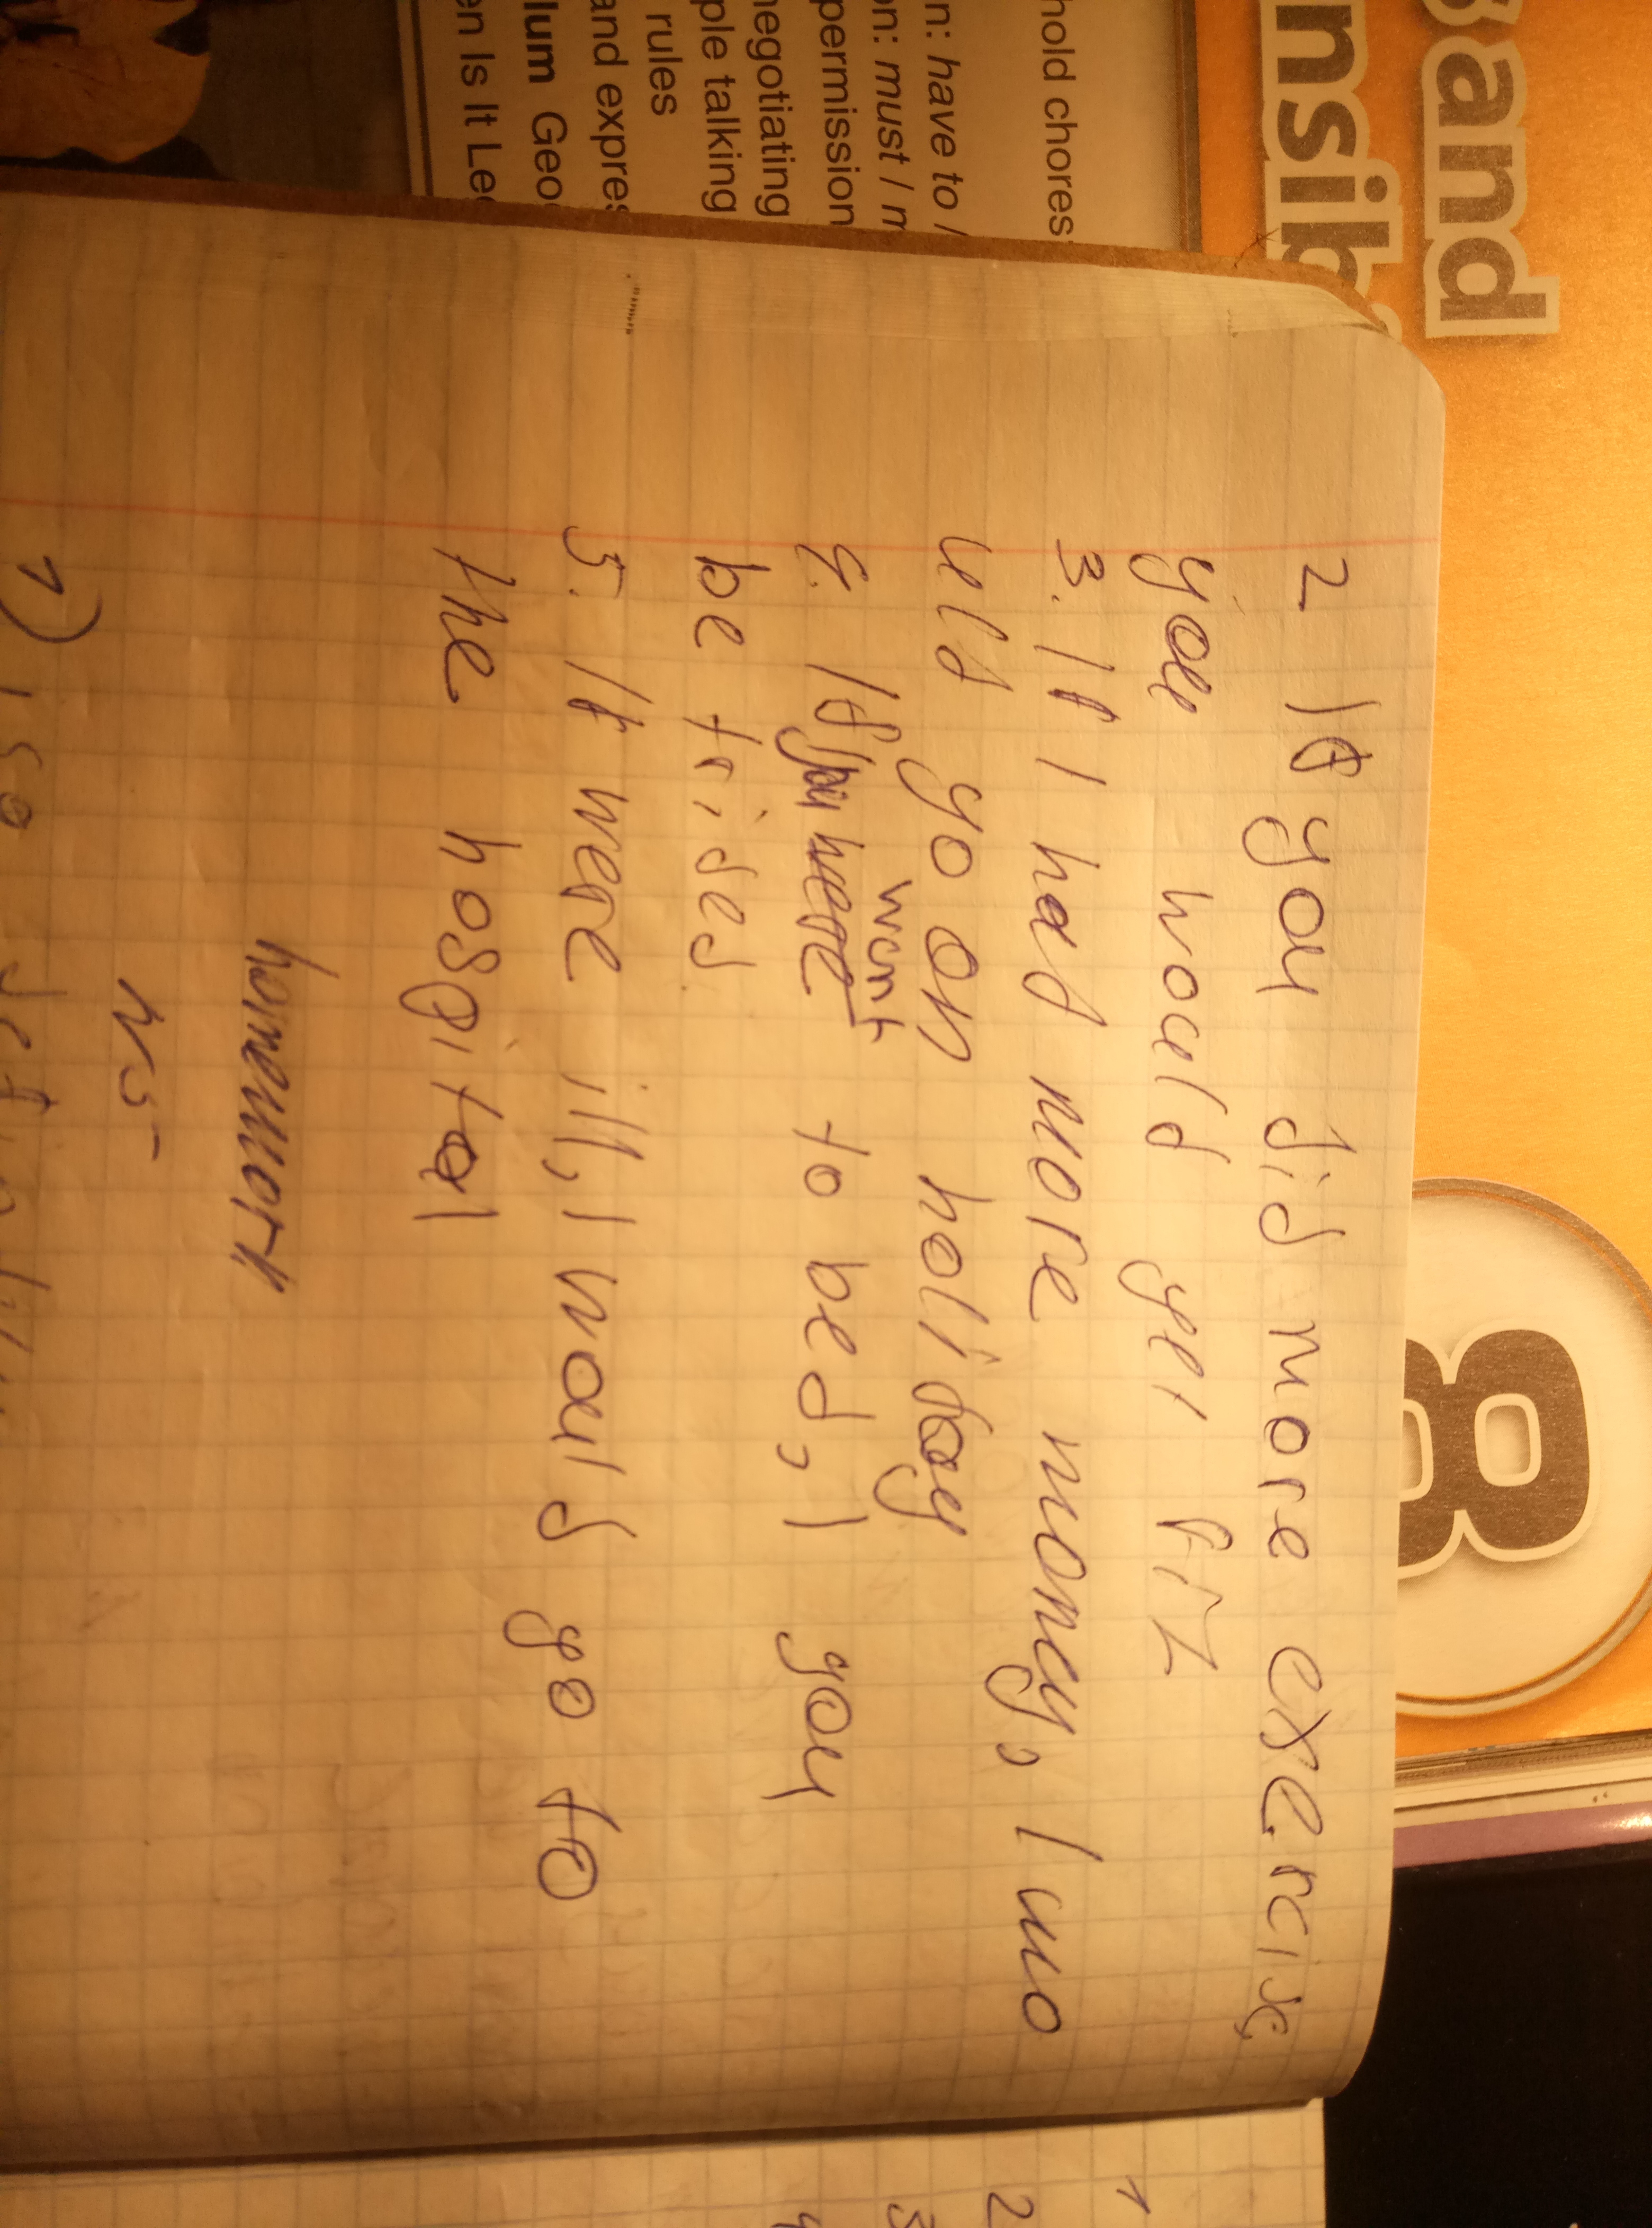 and
nsib
8
hold chores
n: have to /
on: must / m
permission
negotiating
ple talking
rules
and expres
lum Geog
en Is It Leg
2 If you did more exercise,
you would get fit
3. If I had more money, I wo
uld go on holiday
went
4. If you were to bed, I you
be tried
5. If were ill, I would go to
the hospital
homework
N5
1)
1
2
3
4